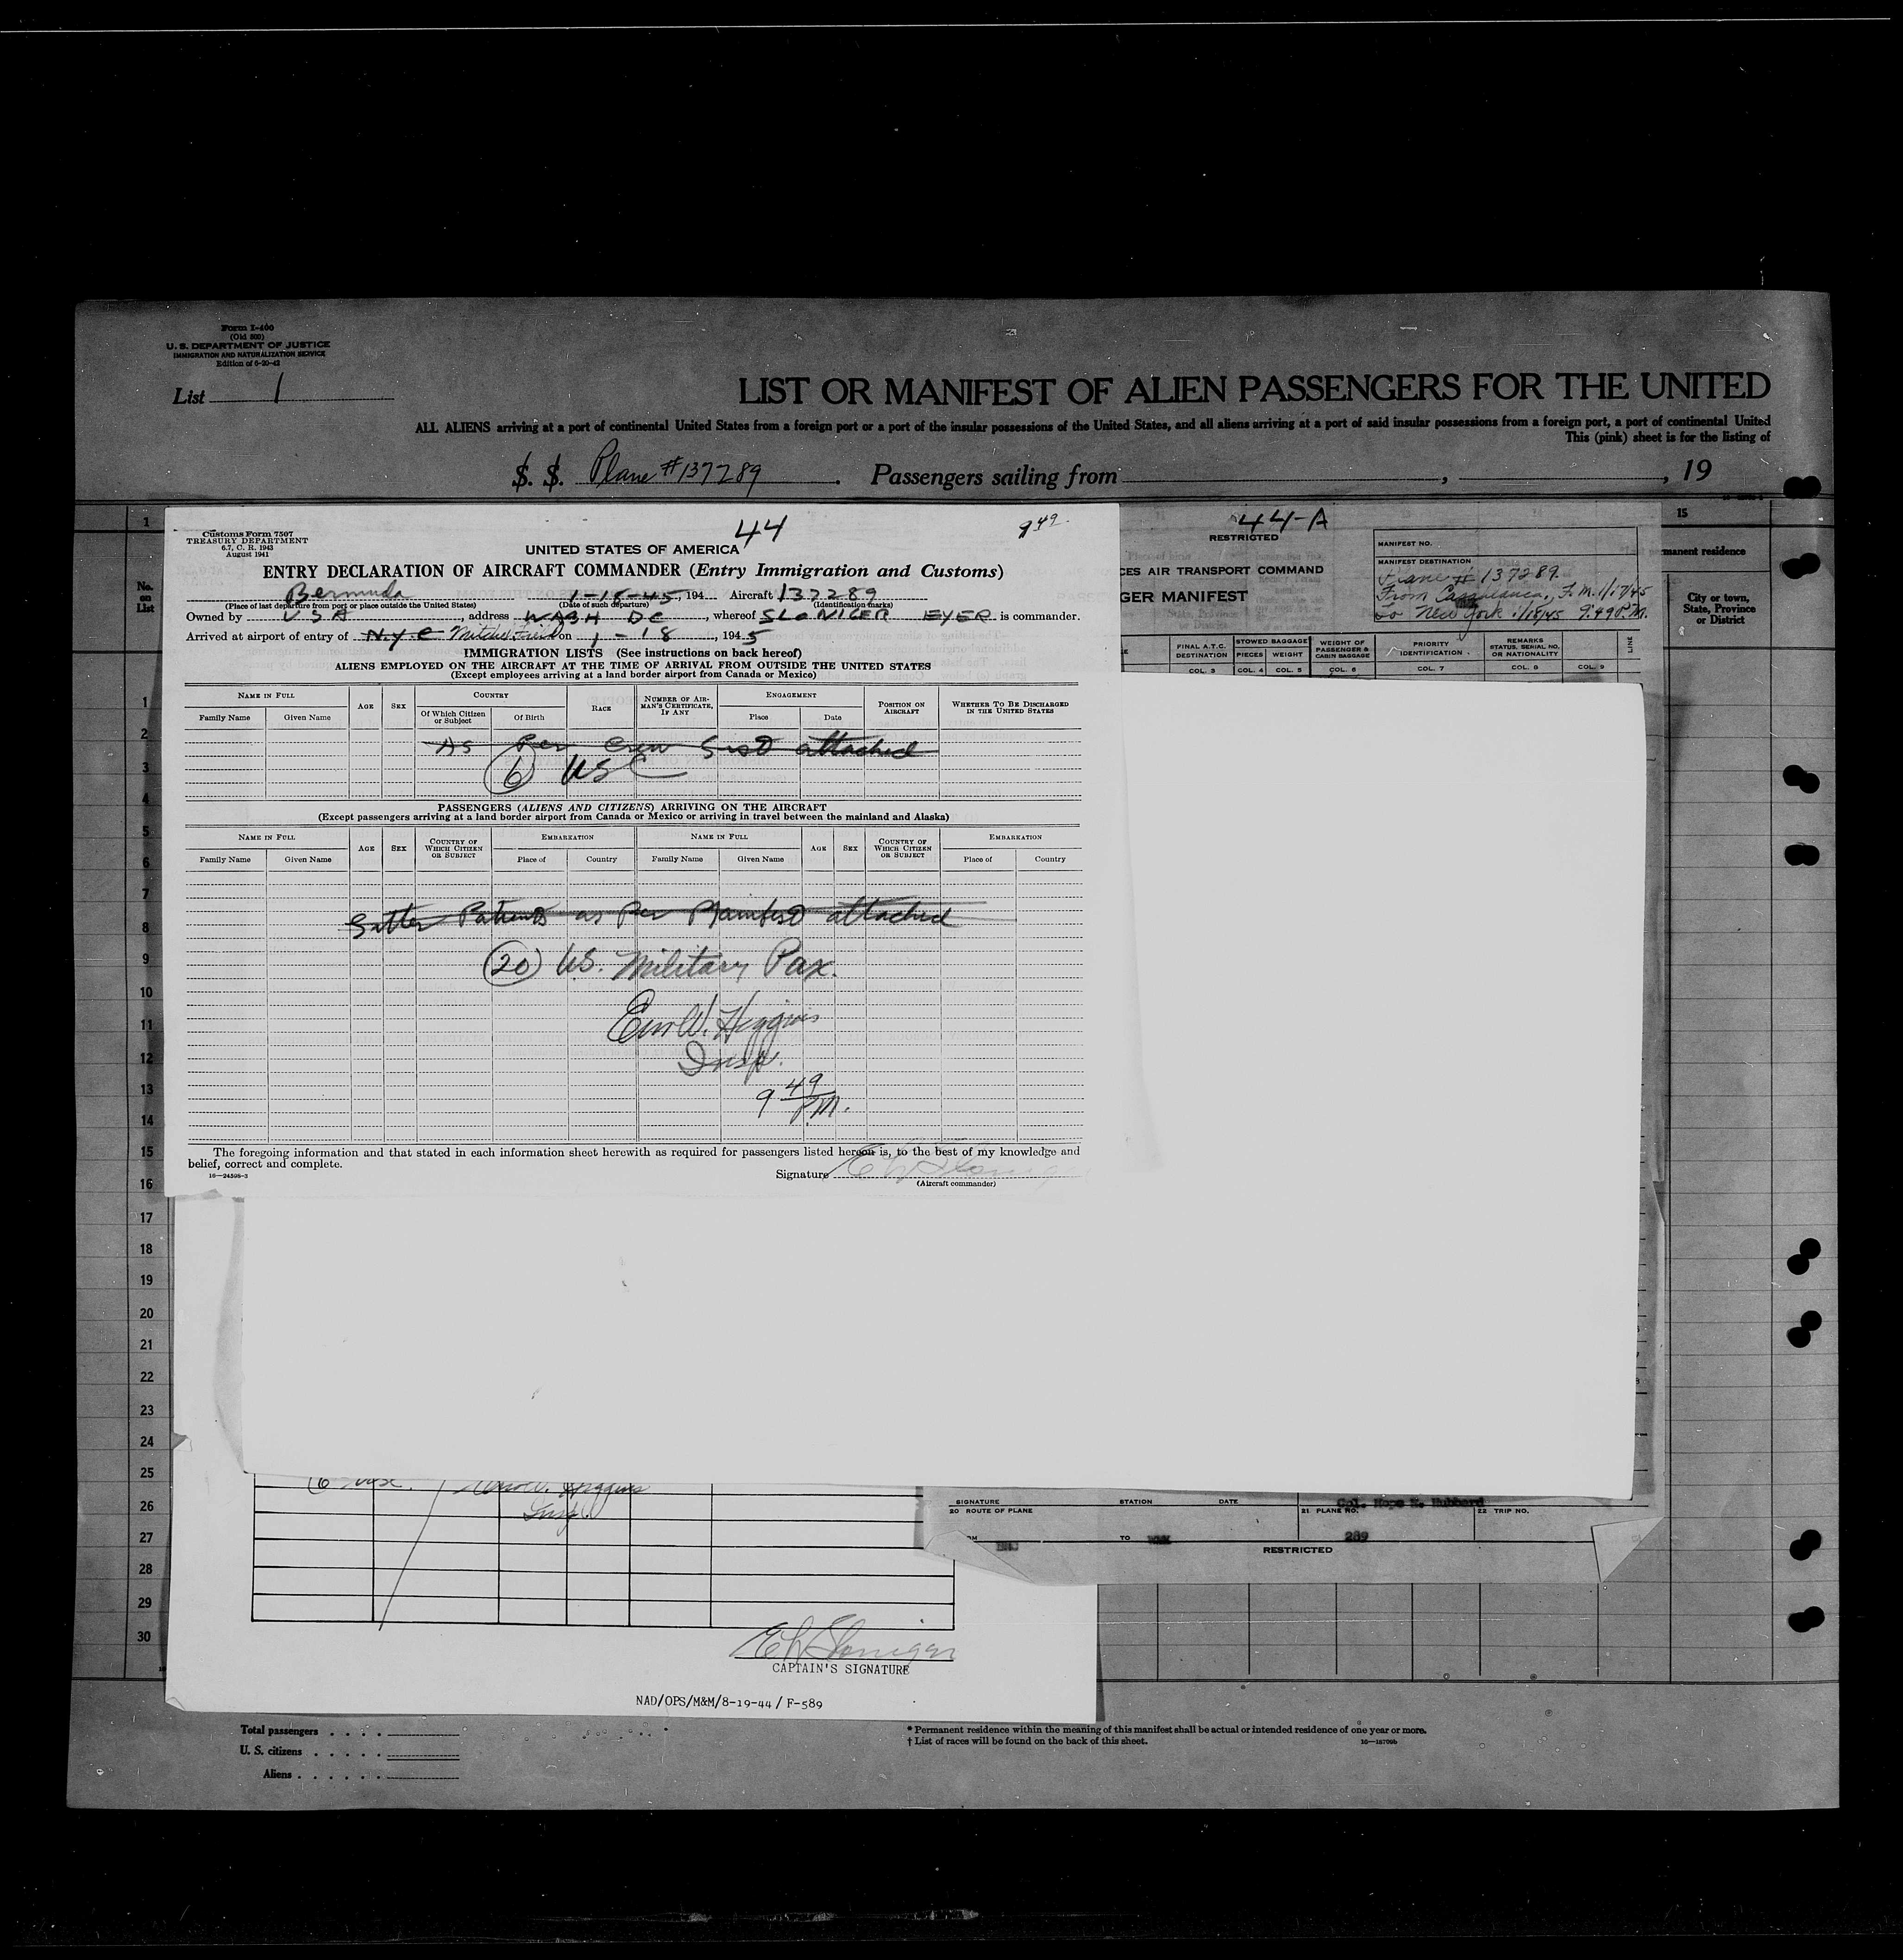 Form I-400
(Old 500)
U. S. DEPARTMENT OF JUSTICE
IMMIGRATION AND NATURALIZATION SERVICE
Edition of 6-20-42
List 1
LIST OR MANIFEST OF ALIEN PASSENGERS FOR THE UNITED
ALL ALIENS arriving at a port of continental United States from a foreign port or a port of the insular possessions of the United States, and all aliens arriving at a port of said insular possessions from a foreign port, a port of continental United
This (pink) sheet is for the listing of
S. S. Plane #137289. Passengers sailing from , , 19
1
15
No. on List
manent residence
City or town, State, Province or District
44
9 49
Customs Form 7507
TREASURY DEPARTMENT
6.7, C. R. 1943
August 1941
UNITED STATES OF AMERICA
ENTRY DECLARATION OF AIRCRAFT COMMANDER (Entry Immigration and Customs)
Bermuda 1-18-45, 194 Aircraft 137289
(Place of last departure from port or place outside the United States) (Date of such departure) (Identification marks)
Owned by USA, address WASH DC, whereof SLONIGER EYER is commander.
Arrived at airport of entry of N.Y.C Mitchel Field on 1-18, 1945
IMMIGRATION LISTS (See instructions on back hereof)
ALIENS EMPLOYED ON THE AIRCRAFT AT THE TIME OF ARRIVAL FROM OUTSIDE THE UNITED STATES
(Except employees arriving at a land border airport from Canada or Mexico)
NAME IN FULL AGE SEX COUNTRY RACE NUMBER OF AIRMAN'S CERTIFICATE, IF ANY ENGAGEMENT POSITION ON AIRCRAFT WHETHER TO BE DISCHARGED IN THE UNITED STATES
Family Name Given Name Of Which Citizen or Subject Of Birth Place Date
As Per Crew List attached
(6) USC
PASSENGERS (ALIENS AND CITIZENS) ARRIVING ON THE AIRCRAFT
(Except passengers arriving at a land border airport from Canada or Mexico or arriving in travel between the mainland and Alaska)
NAME IN FULL AGE SEX COUNTRY OF WHICH CITIZEN OR SUBJECT EMBARKATION NAME IN FULL AGE SEX COUNTRY OF WHICH CITIZEN OR SUBJECT EMBARKATION
Family Name Given Name Place of Country Family Name Given Name Place of Country
Litter Patients as Per Manifest attached
(20) US. Military Pax.
W. Higgins
Insp.
9 49 P.M.
The foregoing information and that stated in each information sheet herewith as required for passengers listed hereon is, to the best of my knowledge and
belief, correct and complete.
16—24598-3
Signature E L Sloniger
(Aircraft commander)
44-A
RESTRICTED
CES AIR TRANSPORT COMMAND
GER MANIFEST
MANIFEST NO.
MANIFEST DESTINATION
Plane # 137289.
From Casablanca, F.M. 1/17/45
To New York 1/18/45 9:49 P.M.
FINAL A.T.C. DESTINATION STOWED BAGGAGE PIECES WEIGHT WEIGHT OF PASSENGER & CABIN BAGGAGE PRIORITY IDENTIFICATION REMARKS STATUS, SERIAL NO. OR NATIONALITY LINE
COL. 3 COL. 4 COL. 5 COL. 6 COL. 7 COL. 8 COL. 9
1
2
3
4
5
6
7
8
9
10
11
12
13
14
15
16
17
18
19
20
21
22
23
24
25
26
27
28
29
30
Higgins
Insp.
SIGNATURE STATION DATE Col. Hope K. Hubbard
20 ROUTE OF PLANE 21 PLANE NO. 22 TRIP NO.
TO 289
RESTRICTED
E L Sloniger
CAPTAIN'S SIGNATURE
NAD/OPS/M&M/8-19-44 / F-589
Total passengers
U. S. citizens
Aliens
* Permanent residence within the meaning of this manifest shall be actual or intended residence of one year or more.
† List of races will be found on the back of this sheet.